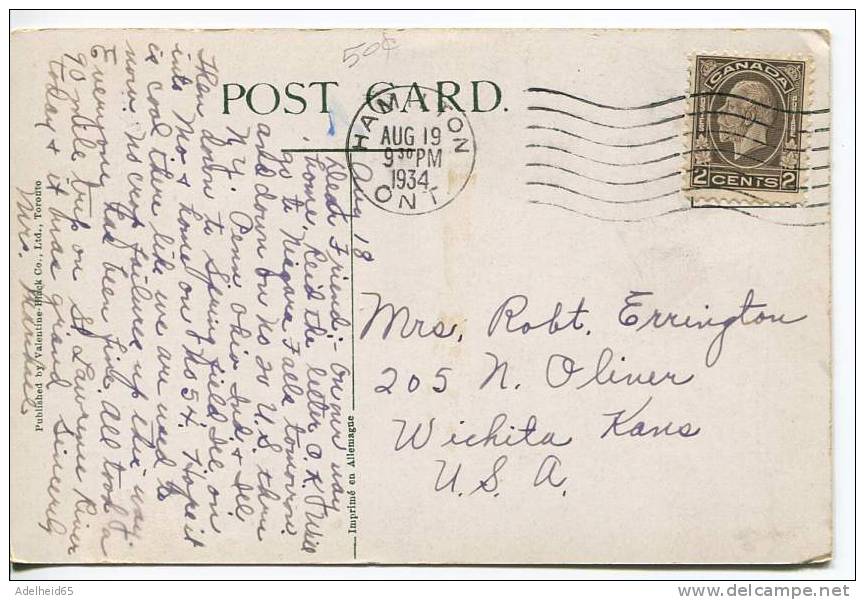 50¢
POST CARD.
HAMILTON
ONT
AUG 19
9 30 PM
1934
CANADA
2 CENTS 2
Aug 18
Dear Friend:- On our way
home. Rec'd the letter O.K. Will
go to Niagara Falls tomorrow
and down on No 20 U.S. thru
N.Y. Penn Ohio Ind. & Ill
then down to Springfield Ill. on
into Mo & home on No 54. Hope it
is cool there like we are used to
now. No crop failures up this way.
Everyone has been fine. All took a
90 mile trip on St Lawrence River
today & it was grand Sincerely
Mrs.
Mrs. Robt. Errington
205 N. Oliver
Wichita Kans
U.S.A.
Published by Valentine-Black Co., Ltd., Toronto
Imprimé en Allemagne
Adelheid65
delcampe.net